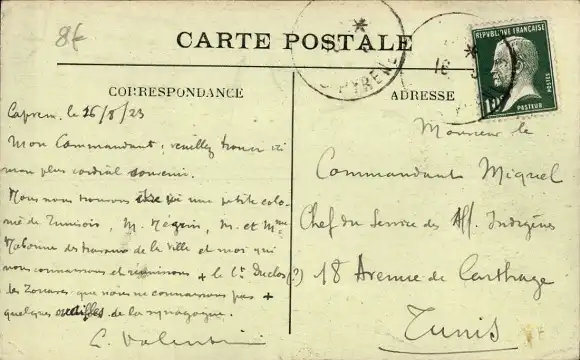 8f
CARTE POSTALE
REPUBLIQUE FRANÇAISE
POSTES
10
PASTEUR
PYRENE
16
CORRESPONDANCE
ADRESSE
Capvern, le 16/8/23
Mon Commandant, veuillez trouver ici
mon plus cordial souvenir.
Nous nous trouvons ici une petite colo-
nie de Tunisois, M. Négrin, M. et Mme
des travaux de la Ville et moi qui
nous connaissons et réunissons + le Ct Duclos (?)
des Zouaves que nous ne connaissons pas +
quelques de la synagogue.
C. Valensi
Monsieur le
Commandant Miquel
Chef du Service des Aff. Indigènes
18 Avenue de Carthage
Tunis